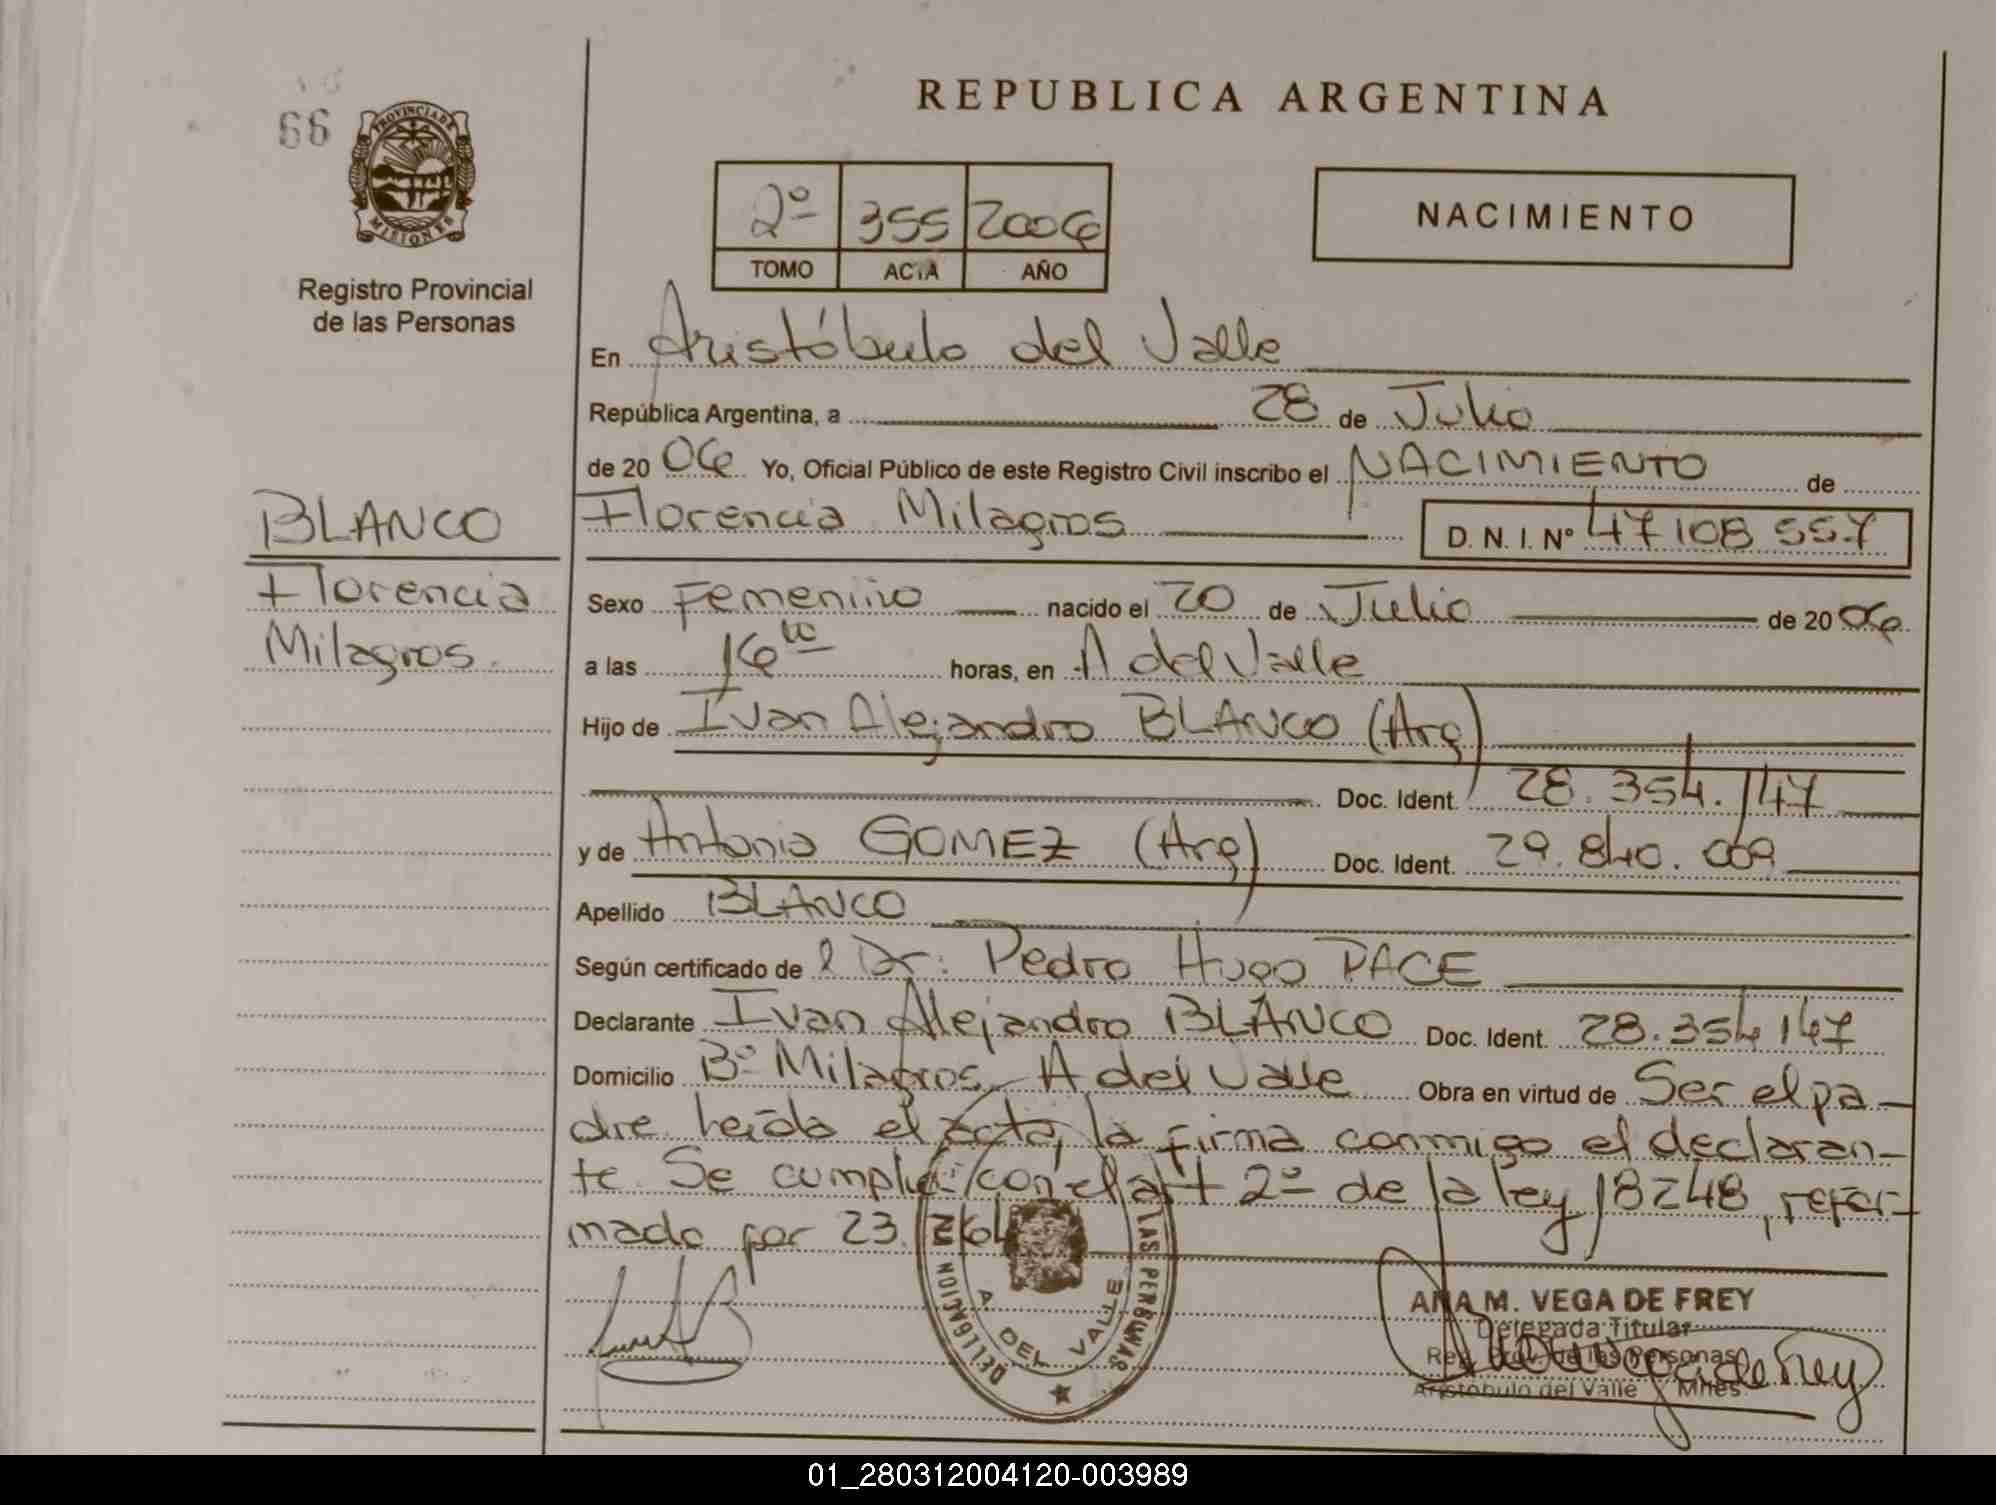 REPUBLICA ARGENTINA
66
PROVINCIA DE
MISIONES
Registro Provincial
de las Personas
2º 355 2006
TOMO ACTA AÑO
NACIMIENTO
En Aristóbulo del Valle
República Argentina, a 28 de Julio
de 20 06 Yo, Oficial Público de este Registro Civil inscribo el NACIMIENTO de
BLANCO
Florencia
Milagros
Florencia Milagros D. N. I. Nº 47108557
Sexo Femenino nacido el 20 de Julio de 20 06
a las 16 horas, en A del Valle
Hijo de Ivan Alejandro BLANCO (Arg)
Doc. Ident. 28.354.147
y de Antonia GOMEZ (Arg) Doc. Ident. 29.840.009
Apellido BLANCO
Según certificado de l Dr: Pedro Hugo PACE
Declarante Ivan Alejandro BLANCO Doc. Ident. 28.354147
Domicilio Bº Milagros A del Valle Obra en virtud de Ser el pa-
dre leida el acta, la firma conmigo el declaran-
te. Se cumple con el art 2º de la ley 18248, refor-
mado por 23.264
DELEGACION LAS PERSONAS
A. DEL VALLE
ANA M. VEGA DE FREY
Delegada Titular
Reg. Prov. de las Personas
Aristóbulo del Valle Mnes.
01_280312004120-003989